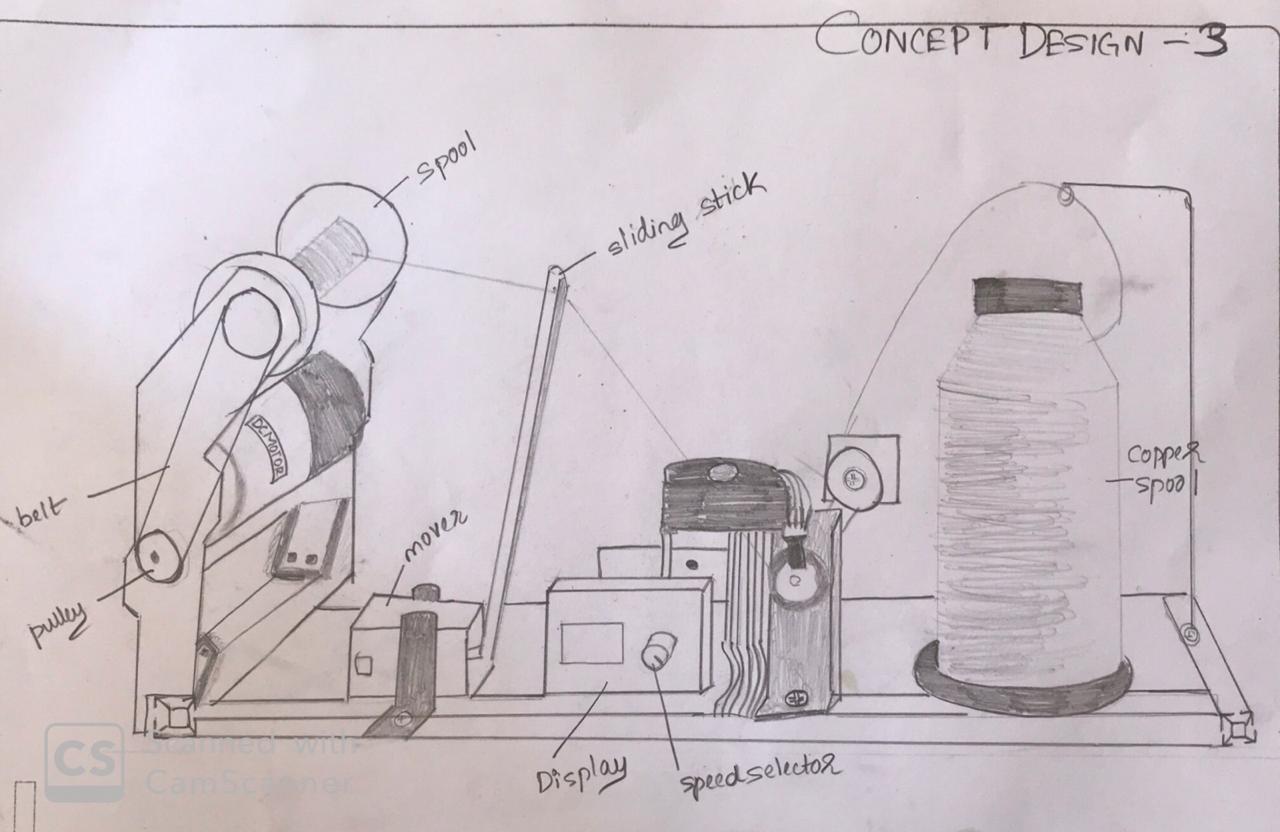 CONCEPT DESIGN - 3
spool
sliding stick
DC MOTOR
copper
spool
belt
mover
pulley
Display
speed selector
CS
Scanned with
CamScanner